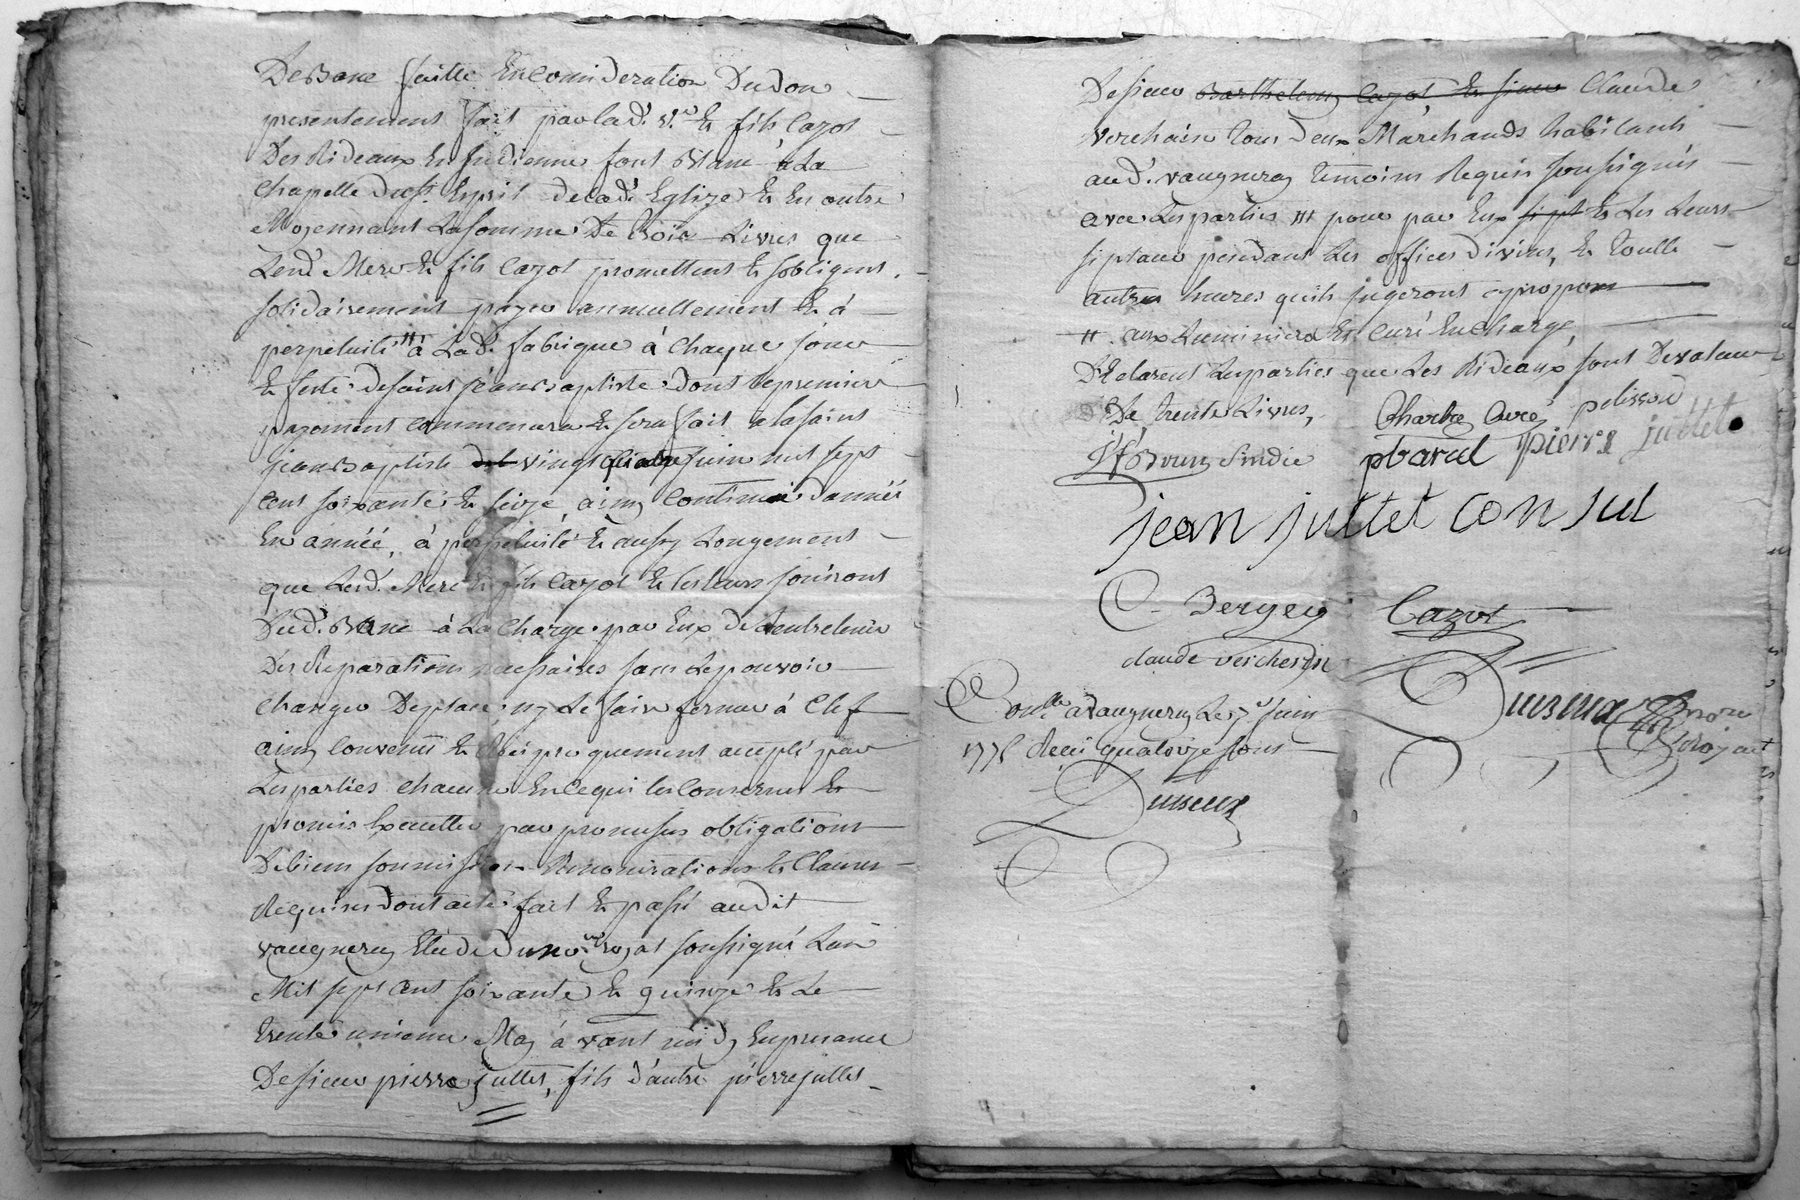 De Banc faitte En Consideration Du don
presentement fait par lad. v.e & fils Cazot
Des Rideaux En Indienne sont Banc a La
Chapelle du st. Esprit de lad. Eglize & En outre
Moyennant La somme De trois Livres que
Lesd. Mere & fils Cazot promettent & sobligent
solidairement payer annuellement & à
perpetuité # à Lad. fabrique à Chaque jour
& feste de saint jean baptiste dont le premier
payement commencera & sera fait a la saint
jean baptiste vingt quatre juin mil sept
cent soixante & seize, ainsy Continué dannée
En année, à perpetuité & aussy Longement
que Lesd. Mere & fils Cazot & les leurs jouiront
Dud. Banc à La Charge par Eux de Lentretenir
Des Reparations necessaires sans Le pouvoir
changer De place, ny Le faire fermer à Clef
ainsy Convenu & Reciproquement accepté par
Les parties chacune En ce qui les Concerne &
promis Executter par promesses obligations
De biens soumissions Renonciations & Clauses
Requises dont acte fait & passé audit
vaugneray Etude du no.re royal soussigné Lan
Mil sept cent soixante & quinze & Le
trente unieme May avant midy En presence
De sieur pierre juttet, fils d'autre pierre juttet
De sieur Barthelemy Cazot, & sieur Claude
Vercherin tous deux Marchands habitants
aud. vaugneray temoins Requis soussignés
avec Les parties ttt pour par Eux & Les Leurs
si placer pendant Les offices divins, & toutte
autres heures quils jugeront apropos
# aux Luminiers & Curé En charge,
Declarent Les parties que Les Rideaux sont De valeur
De trente Livres, Charbe Curé pelisson
Brun Sindic pbarcel pierre juttet
jean juttet Consul
C. Berger Cazot
claude vercherin
Con.lle a Vaugneray Le 7e juin
1775 Recu quatorze sous